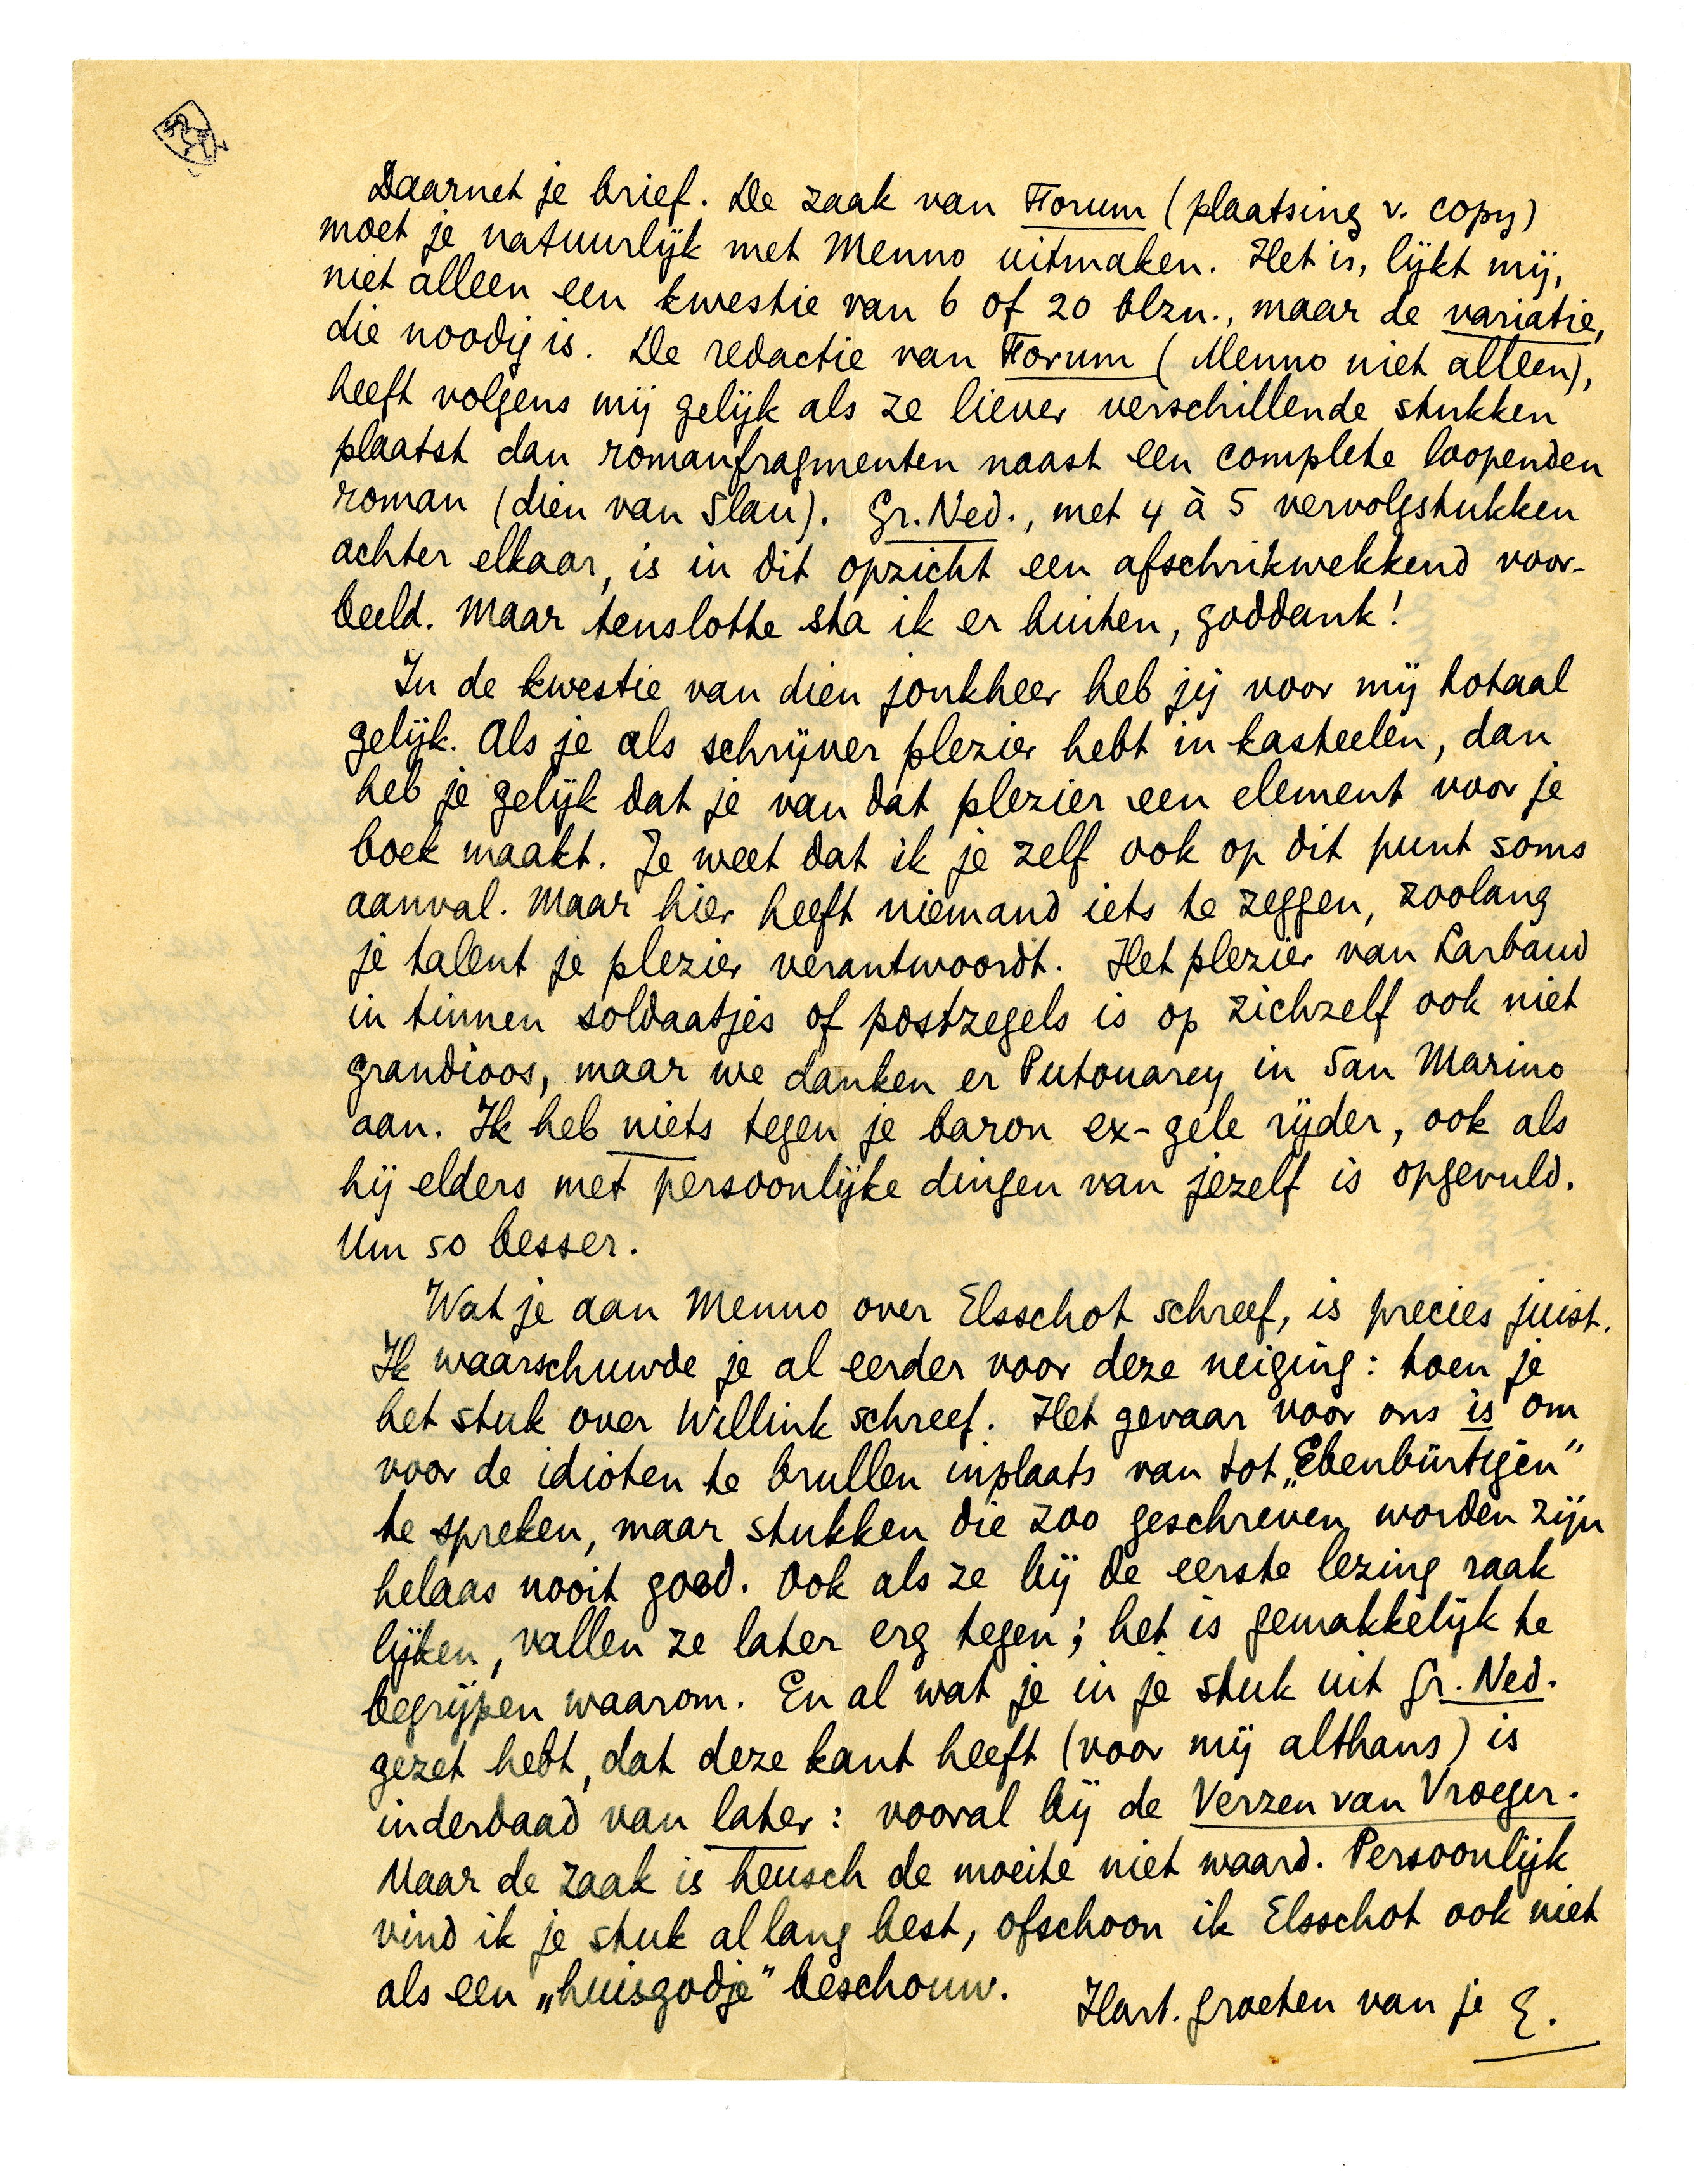 Daarnet je brief. De zaak van Forum (plaatsing v. copy)
moet je natuurlijk met Menno uitmaken. Het is, lijkt mij,
niet alleen een kwestie van 6 of 20 blzn., maar de variatie,
die noodig is. De redactie van Forum (Menno niet alleen),
heeft volgens mij gelijk als ze liever verschillende stukken
plaatst dan romanfragmenten naast een complete loopenden
roman (dien van Slau). Gr. Ned., met 4 à 5 vervolgstukken
achter elkaar, is in dit opzicht een afschrikwekkend voor-
beeld. Maar tenslotte sta ik er buiten, goddank!
In de kwestie van dien jonkheer heb jij voor mij totaal
gelijk. Als je als schrijver plezier hebt in kasteelen, dan
heb je gelijk dat je van dat plezier een element voor je
boek maakt. Je weet dat ik je zelf ook op dit punt soms
aanval. Maar hier heeft niemand iets te zeggen, zoolang
je talent je plezier verantwoordt. Het plezier van Larbaud
in tinnen soldaatjes of postzegels is op zichzelf ook niet
grandioos, maar we danken er Putouarey in San Marino
aan. Ik heb niets tegen je baron ex-gele rijder, ook als
hij elders met persoonlijke dingen van jezelf is opgevuld.
Um so besser.
Wat je aan Menno over Elsschot schreef, is precies juist.
Ik waarschuwde je al eerder voor deze neiging: toen je
het stuk over Willink schreef. Het gevaar voor ons is om
voor de idioten te brullen inplaats van tot „Ebenbürtigen”
te spreken, maar stukken die zoo geschreven worden zijn
helaas nooit goed. Ook als ze bij de eerste lezing raak
lijken, vallen ze later erg tegen; het is gemakkelijk te
begrijpen waarom. En al wat je in je stuk uit Gr. Ned.
gezet hebt, dat deze kant heeft (voor mij althans) is
inderdaad van later: vooral bij de Verzen van Vroeger.
Maar de zaak is heusch de moeite niet waard. Persoonlijk
vind ik je stuk allang best, ofschoon ik Elsschot ook niet
als een „huisgodje” beschouw.
Hart. groeten van je E.